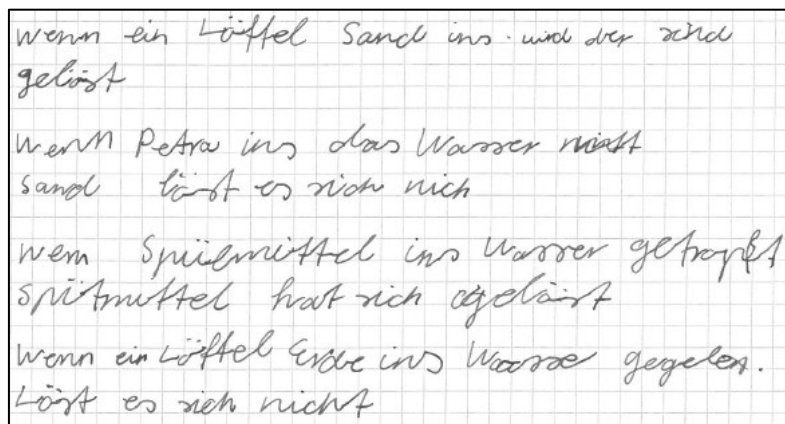 wenn ein Löffel Sand ins. wird der sind
gelöst
wenn Petra ins das Wasser
Sand löst es sich nich
wenn Spüilmittel ins Wasser getropft
Spütmittel hat sich gelöist
Wenn ein Löffel Erde ins Waasse gegelen.
Löst es sich nicht